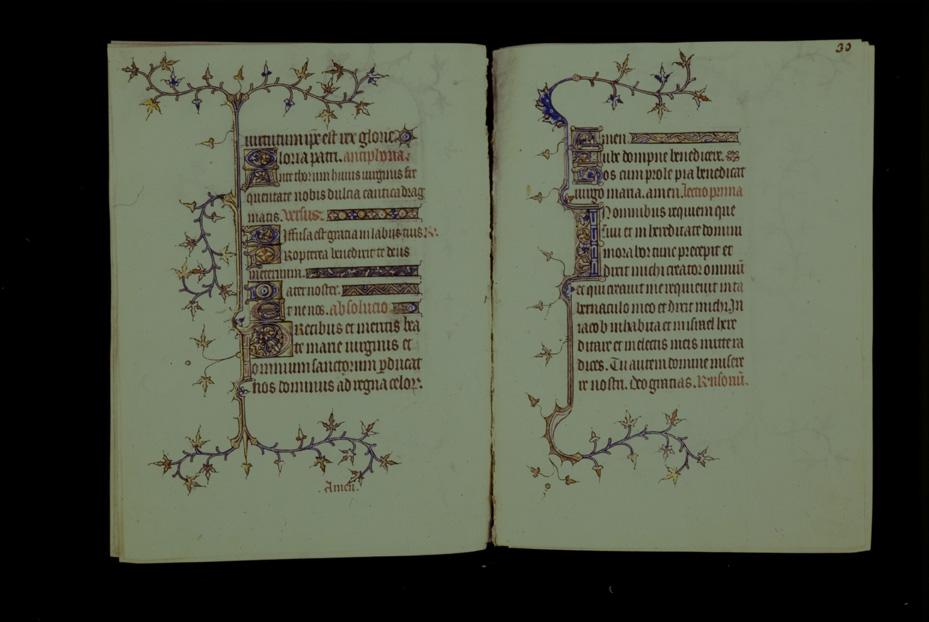 uirtutum ip̄e est rex glorie.
Gloria patri. antiphona.
Ante thorum huius uirginis fre
quentate nobis dulcia cantica drag
matis. Versus.
Diffusa est gratia in labiis tuis
Propterea benedixit te deus
in eternum.
Pater noster.
Et ne nos. absolucio.
Precibus et meritis bea
te marie uirginis et
omnium sanctorum ꝑducat
nos dominus ad regna celoꝝ.
Amen.
30
Amen.
Iube dompne benedicere.
Nos cum prole pia benedicat
uirgo maria. amen. lectio prima
In omnibus requiem que
siui et in hereditate domini
morabor tunc precepit et
dixit michi creator omniū
et qui creauit me requieuit in ta
bernaculo meo et dixit michi. In
iacob inhabita et in israel here
ditare et in electis meis mitte ra
dices. Tu autem domine misere
re nostri. Deo gracias.